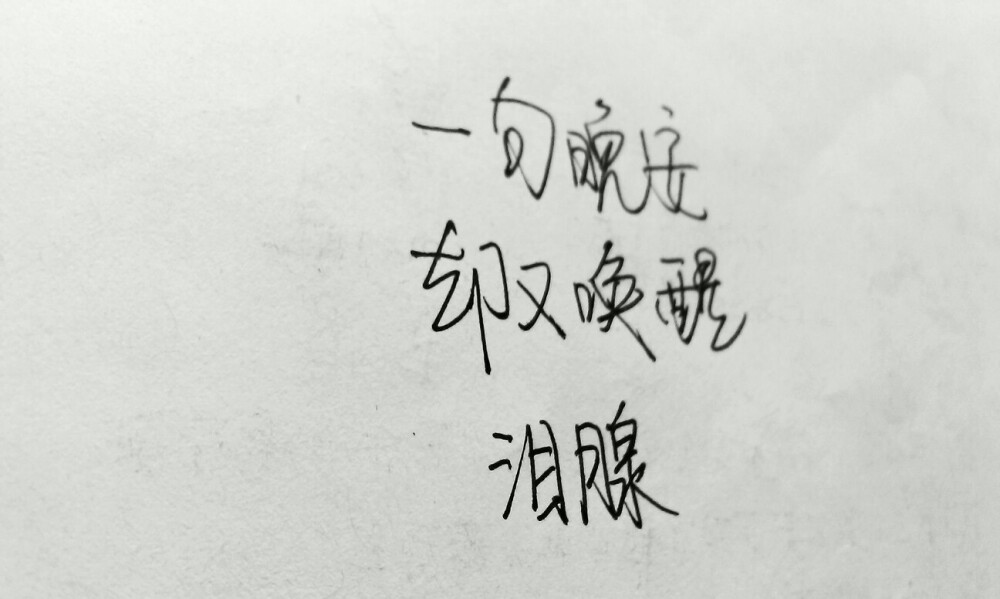 一句晚安
却又唤醒
泪腺